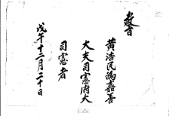 教旨
黃浩民為嘉善
大夫司憲府大
司憲者
戊午十二月二十日